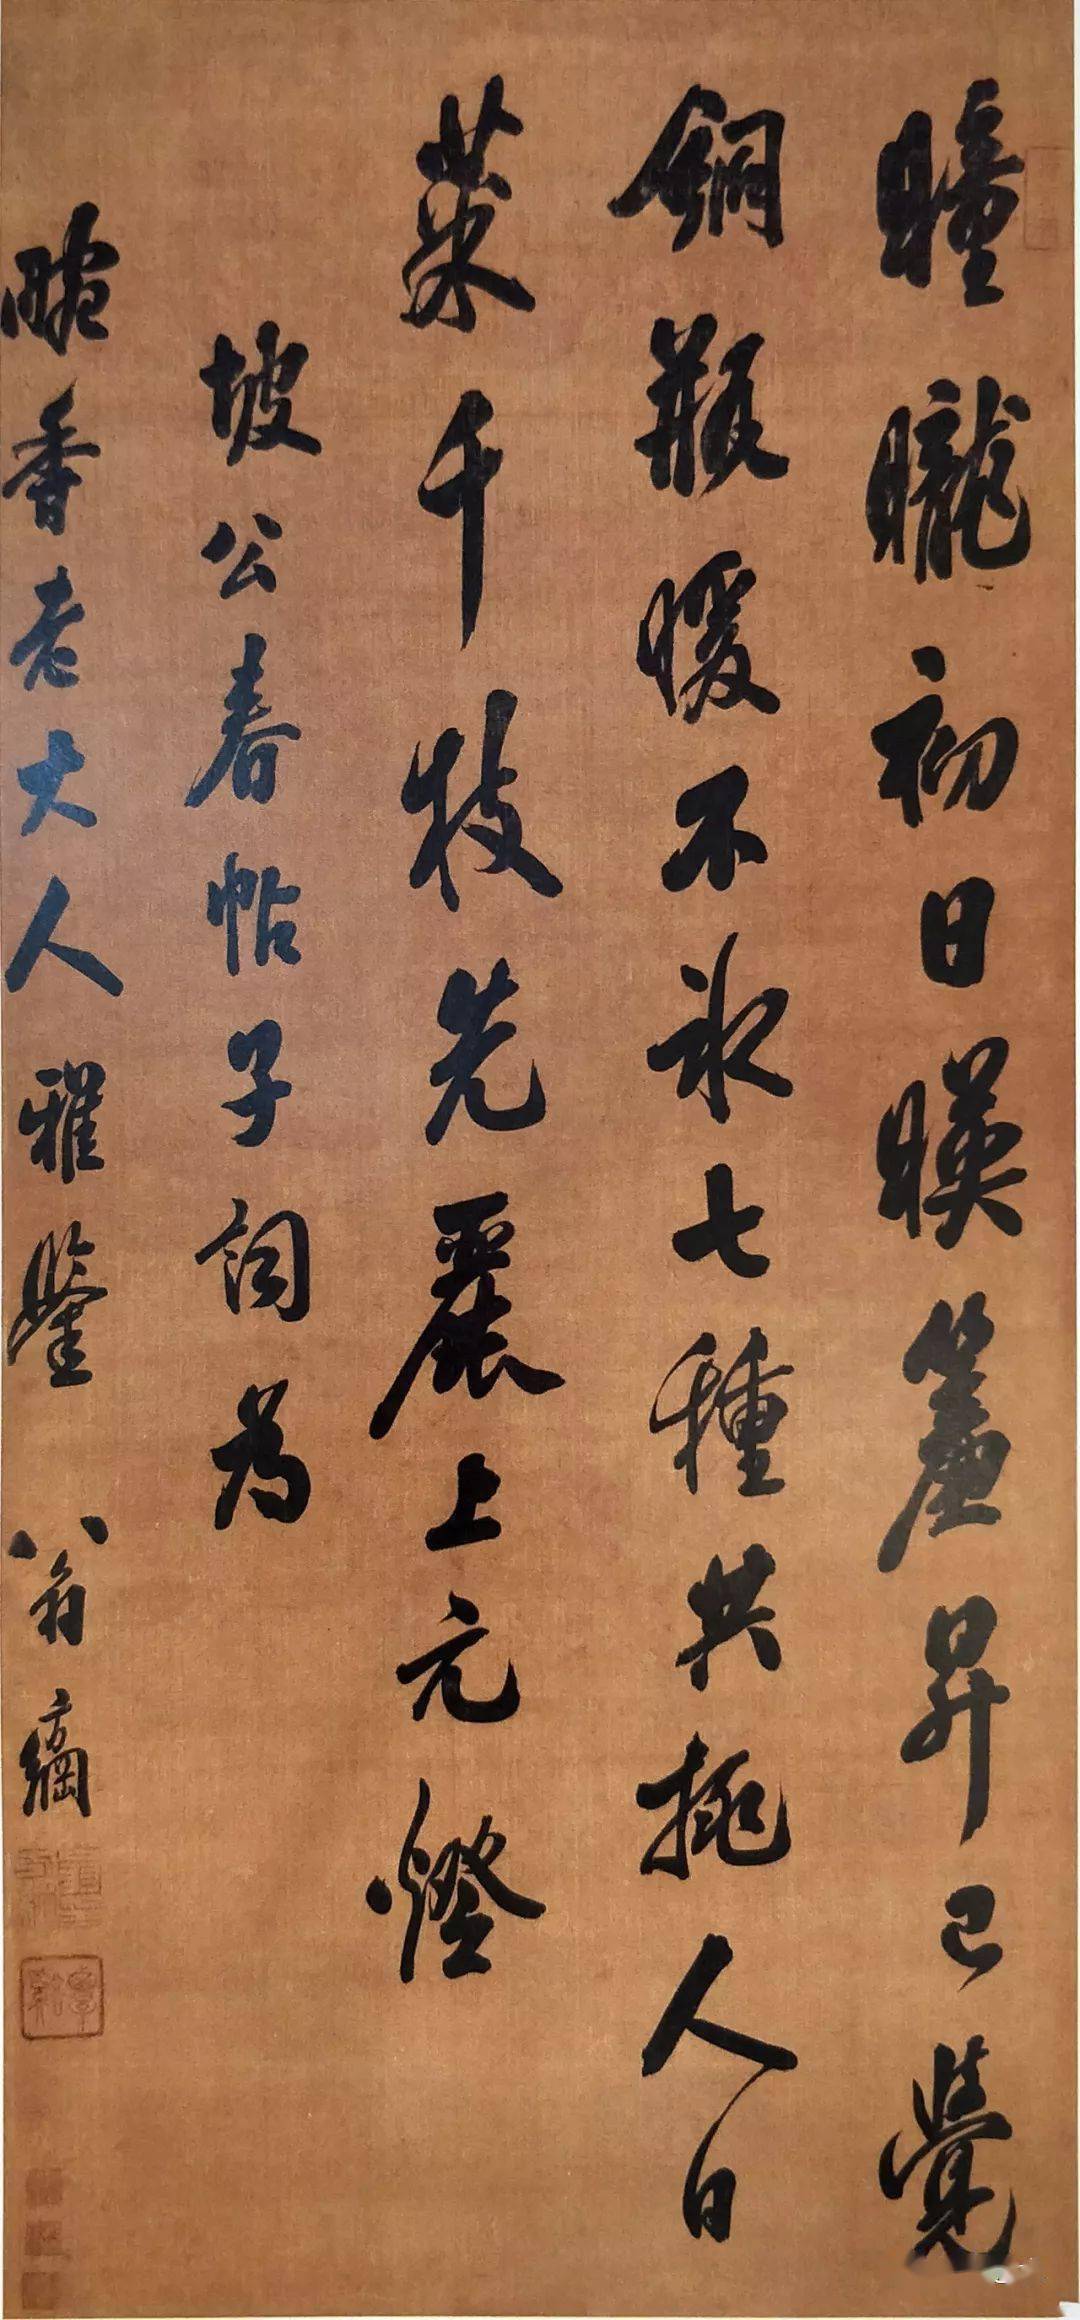 瞳矓初日暎簾昇已覺
銅瓶暖不氷七種共挑人日
菜千枝先麗上元燈
坡公春帖子詞為
畹香老大人雅鑒 翁方綱